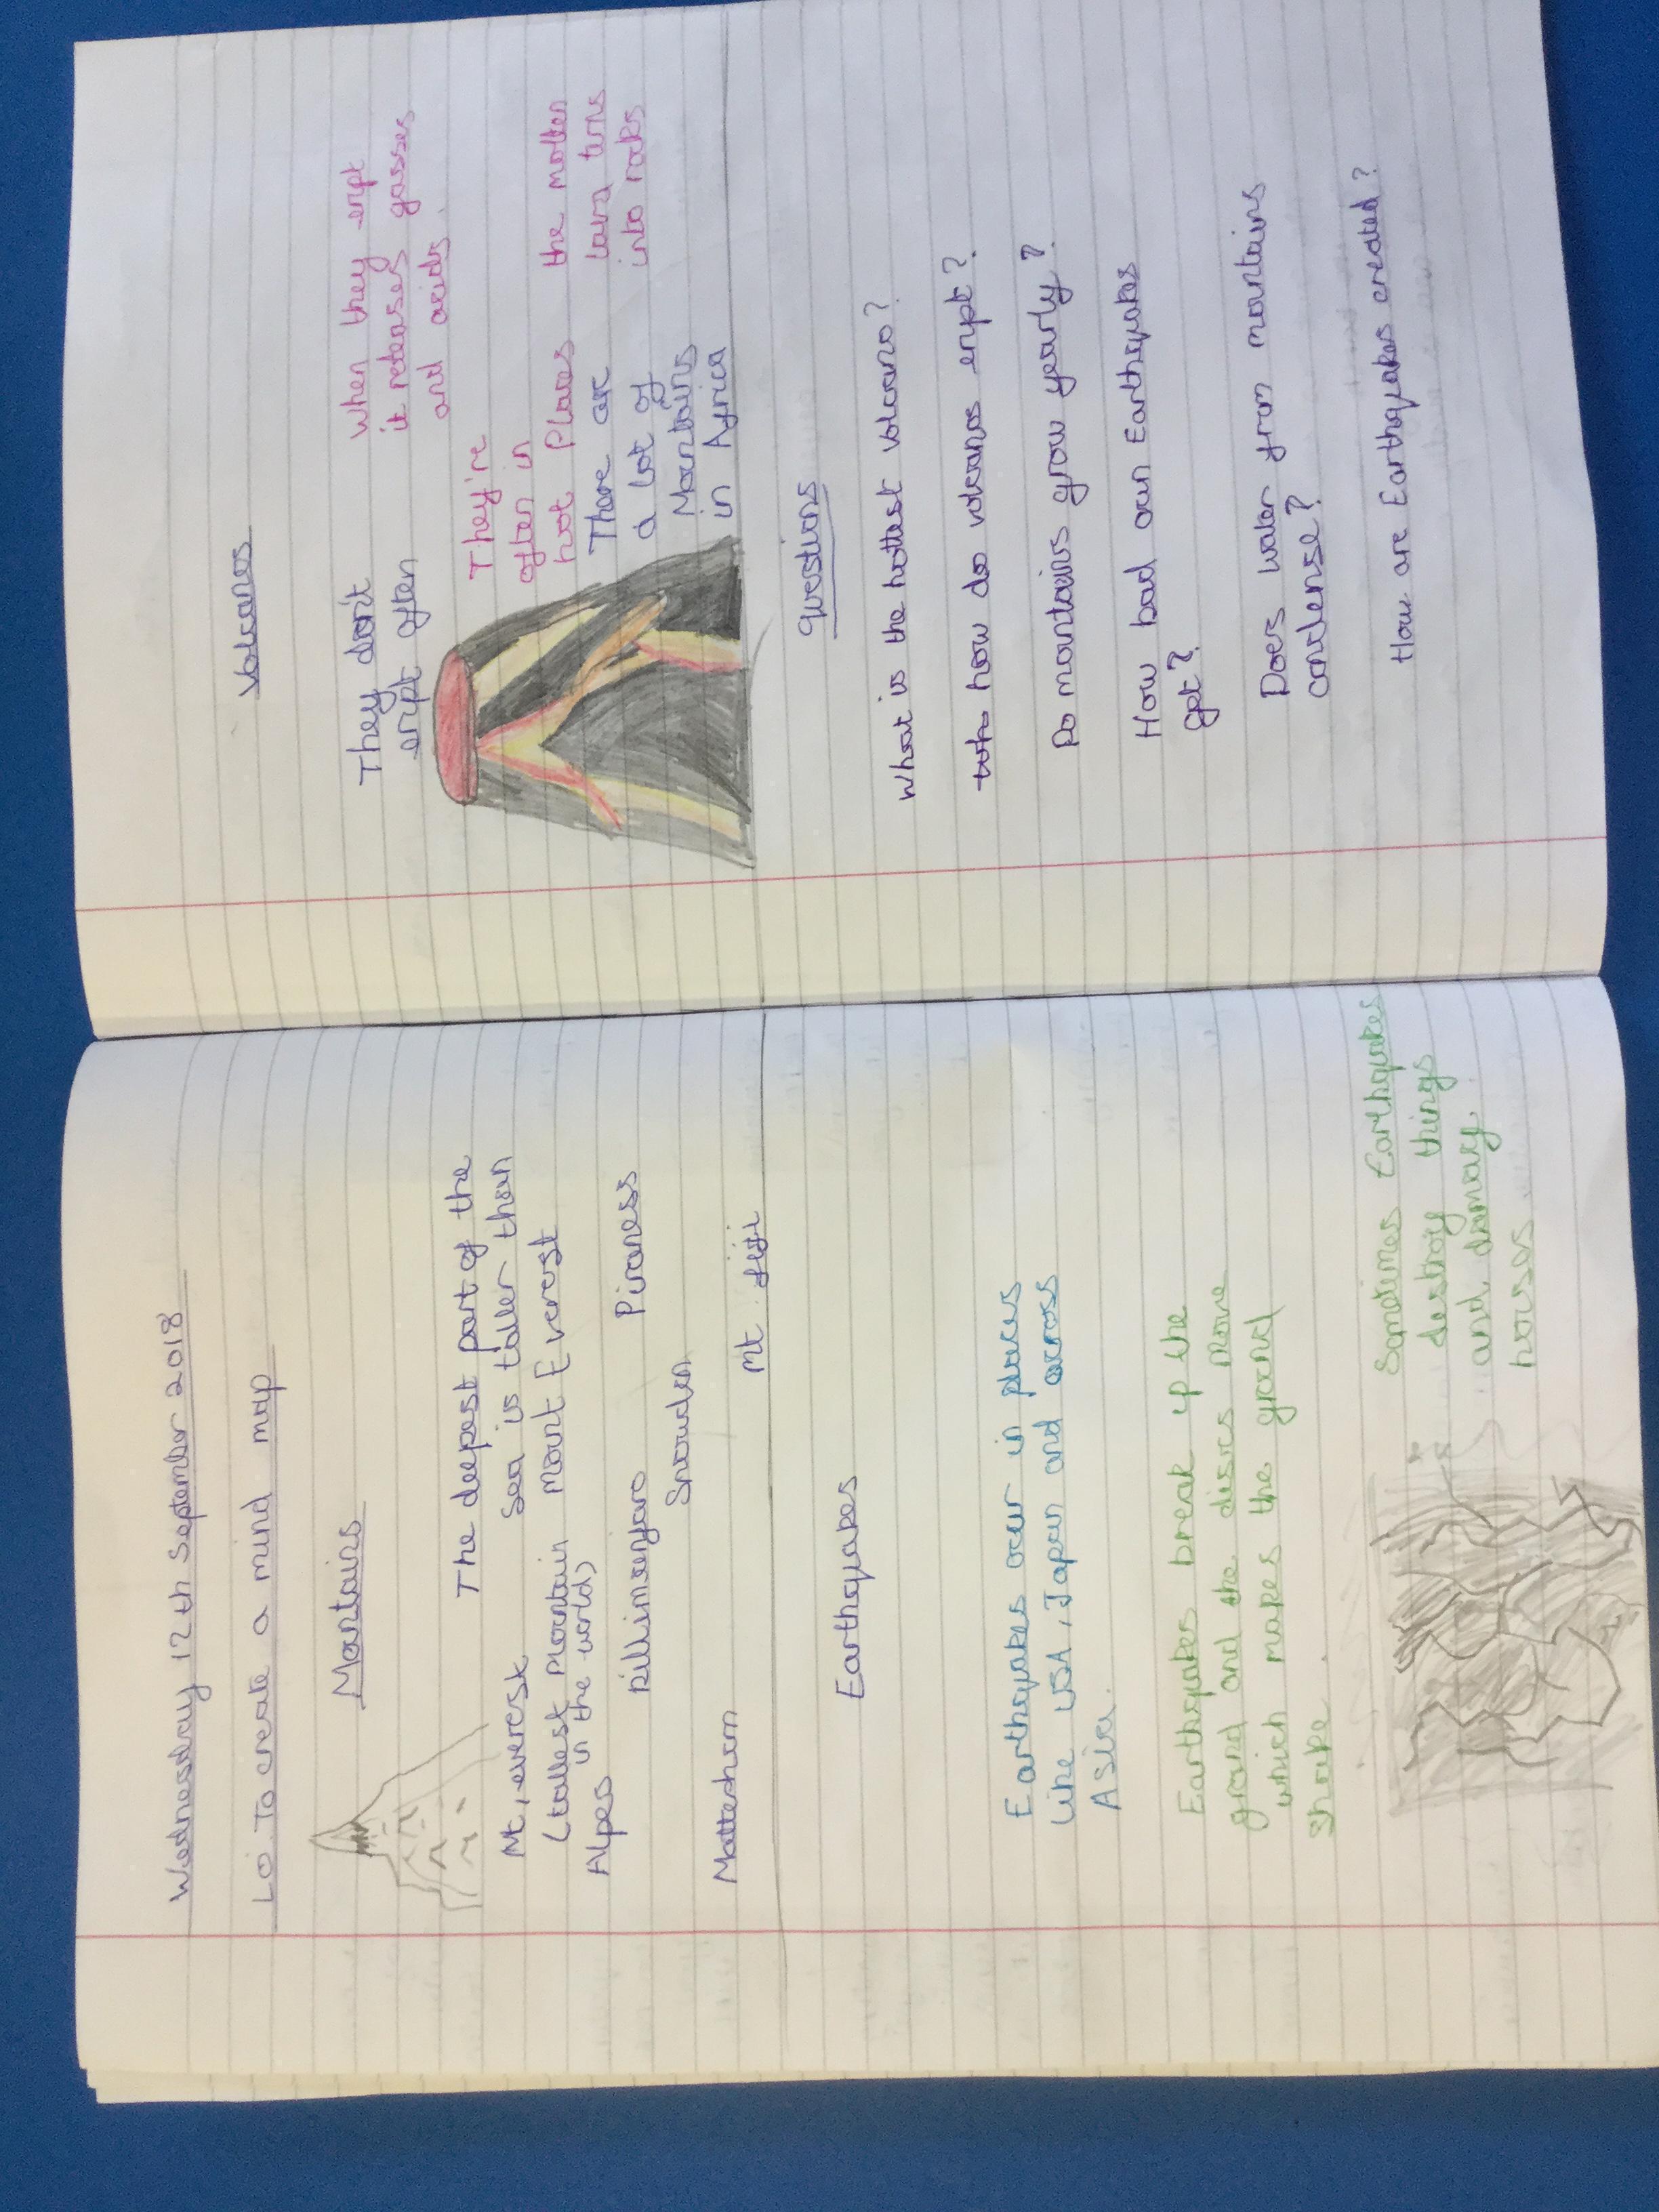 Wednesday 12th September 2018
LO: To create a mind map
Mountains
The deepest part of the
sea is taller than
Mount Everest
Mt, everest
(tallest Mountain
in the world)
Alpes
Killimeenjaro
Piraness
Snowden
Mattershorn
Mt fiji
Earthquakes
Earthquakes ocur in places
like USA, Japan and across
Asia.
Earthquakes break up the
ground and the discs move
which makes the ground
Shake.
Sometimes Earthquakes
destroy things
and damag
houses.
Volcanos
They don't
erupt often
when they erupt
it releases gasses
and acids.
They're
often in
hot Places
the molten
lava turns
into rocks
There are
a lot of
Mountains
in Africa
questions
What is the hottest volcano?
how do volcanos erupt?
Do mountains grow yearly?
How bad can Earthquakes
get?
Does water from mountains
condense?
How are Earthquakes created?